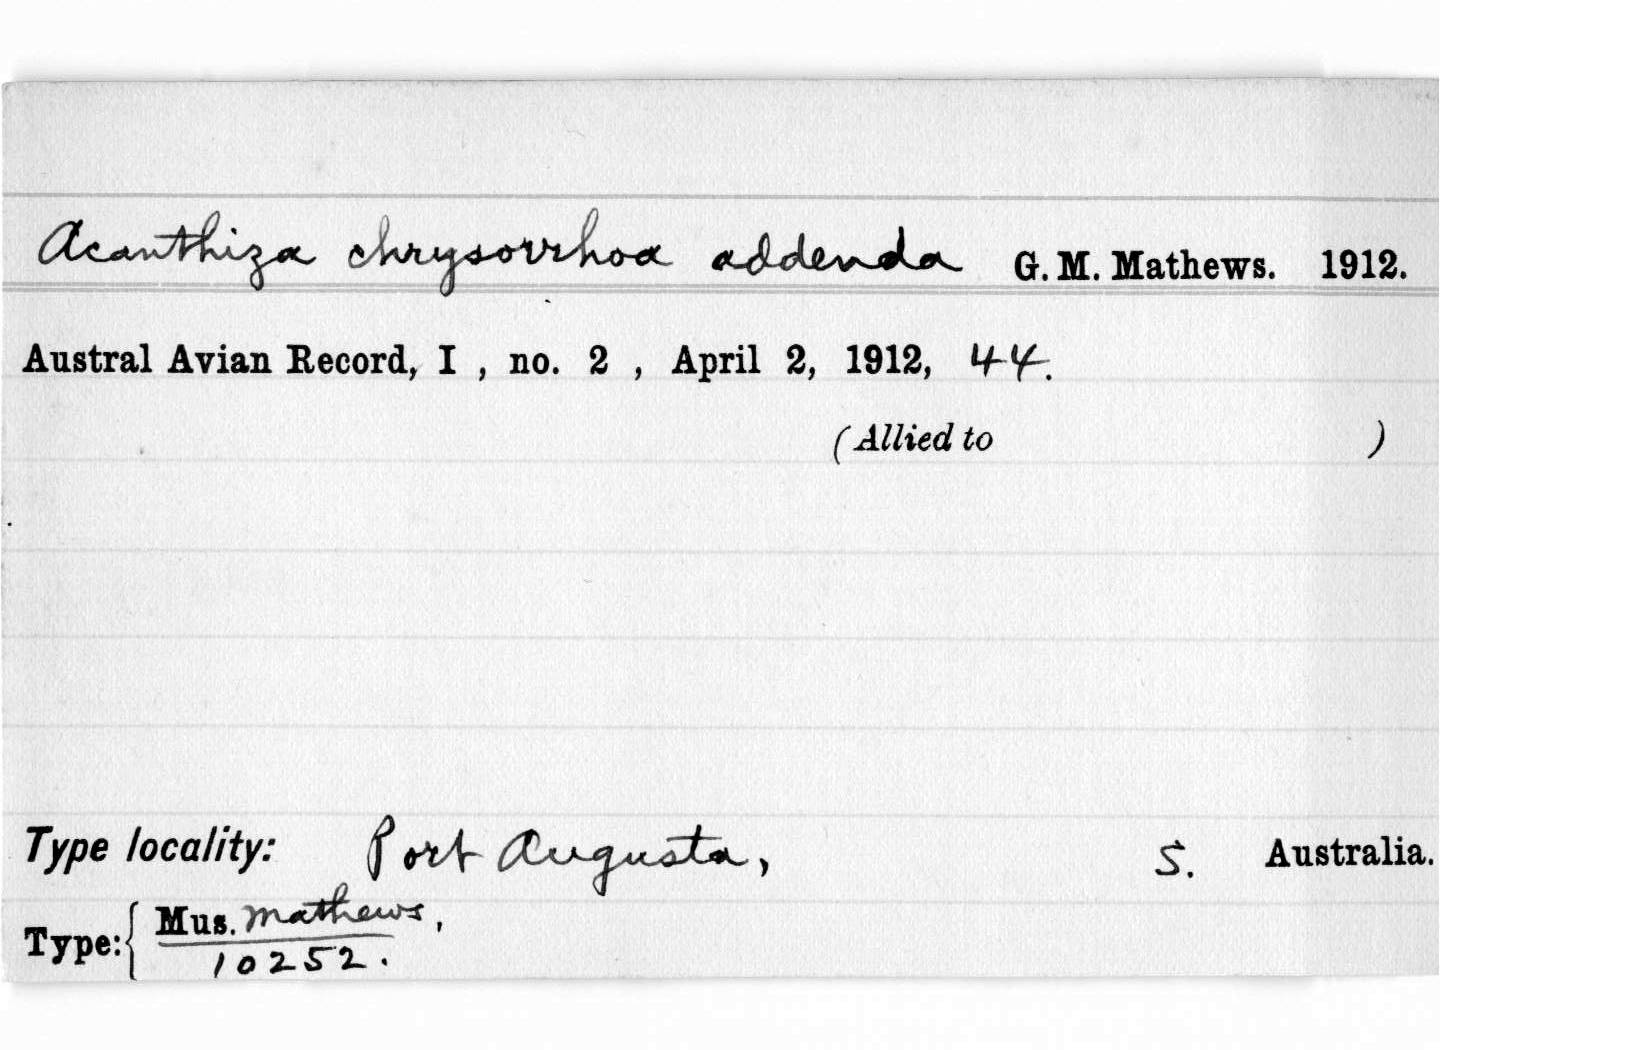 Acanthiza chrysorrhoa addenda G. M. Mathews. 1912.
Austral Avian Record, I , no. 2 , April 2, 1912, 44.
(Allied to )
Type locality: Port Augusta, S. Australia.
Type: { Mus. Mathews,
10252.